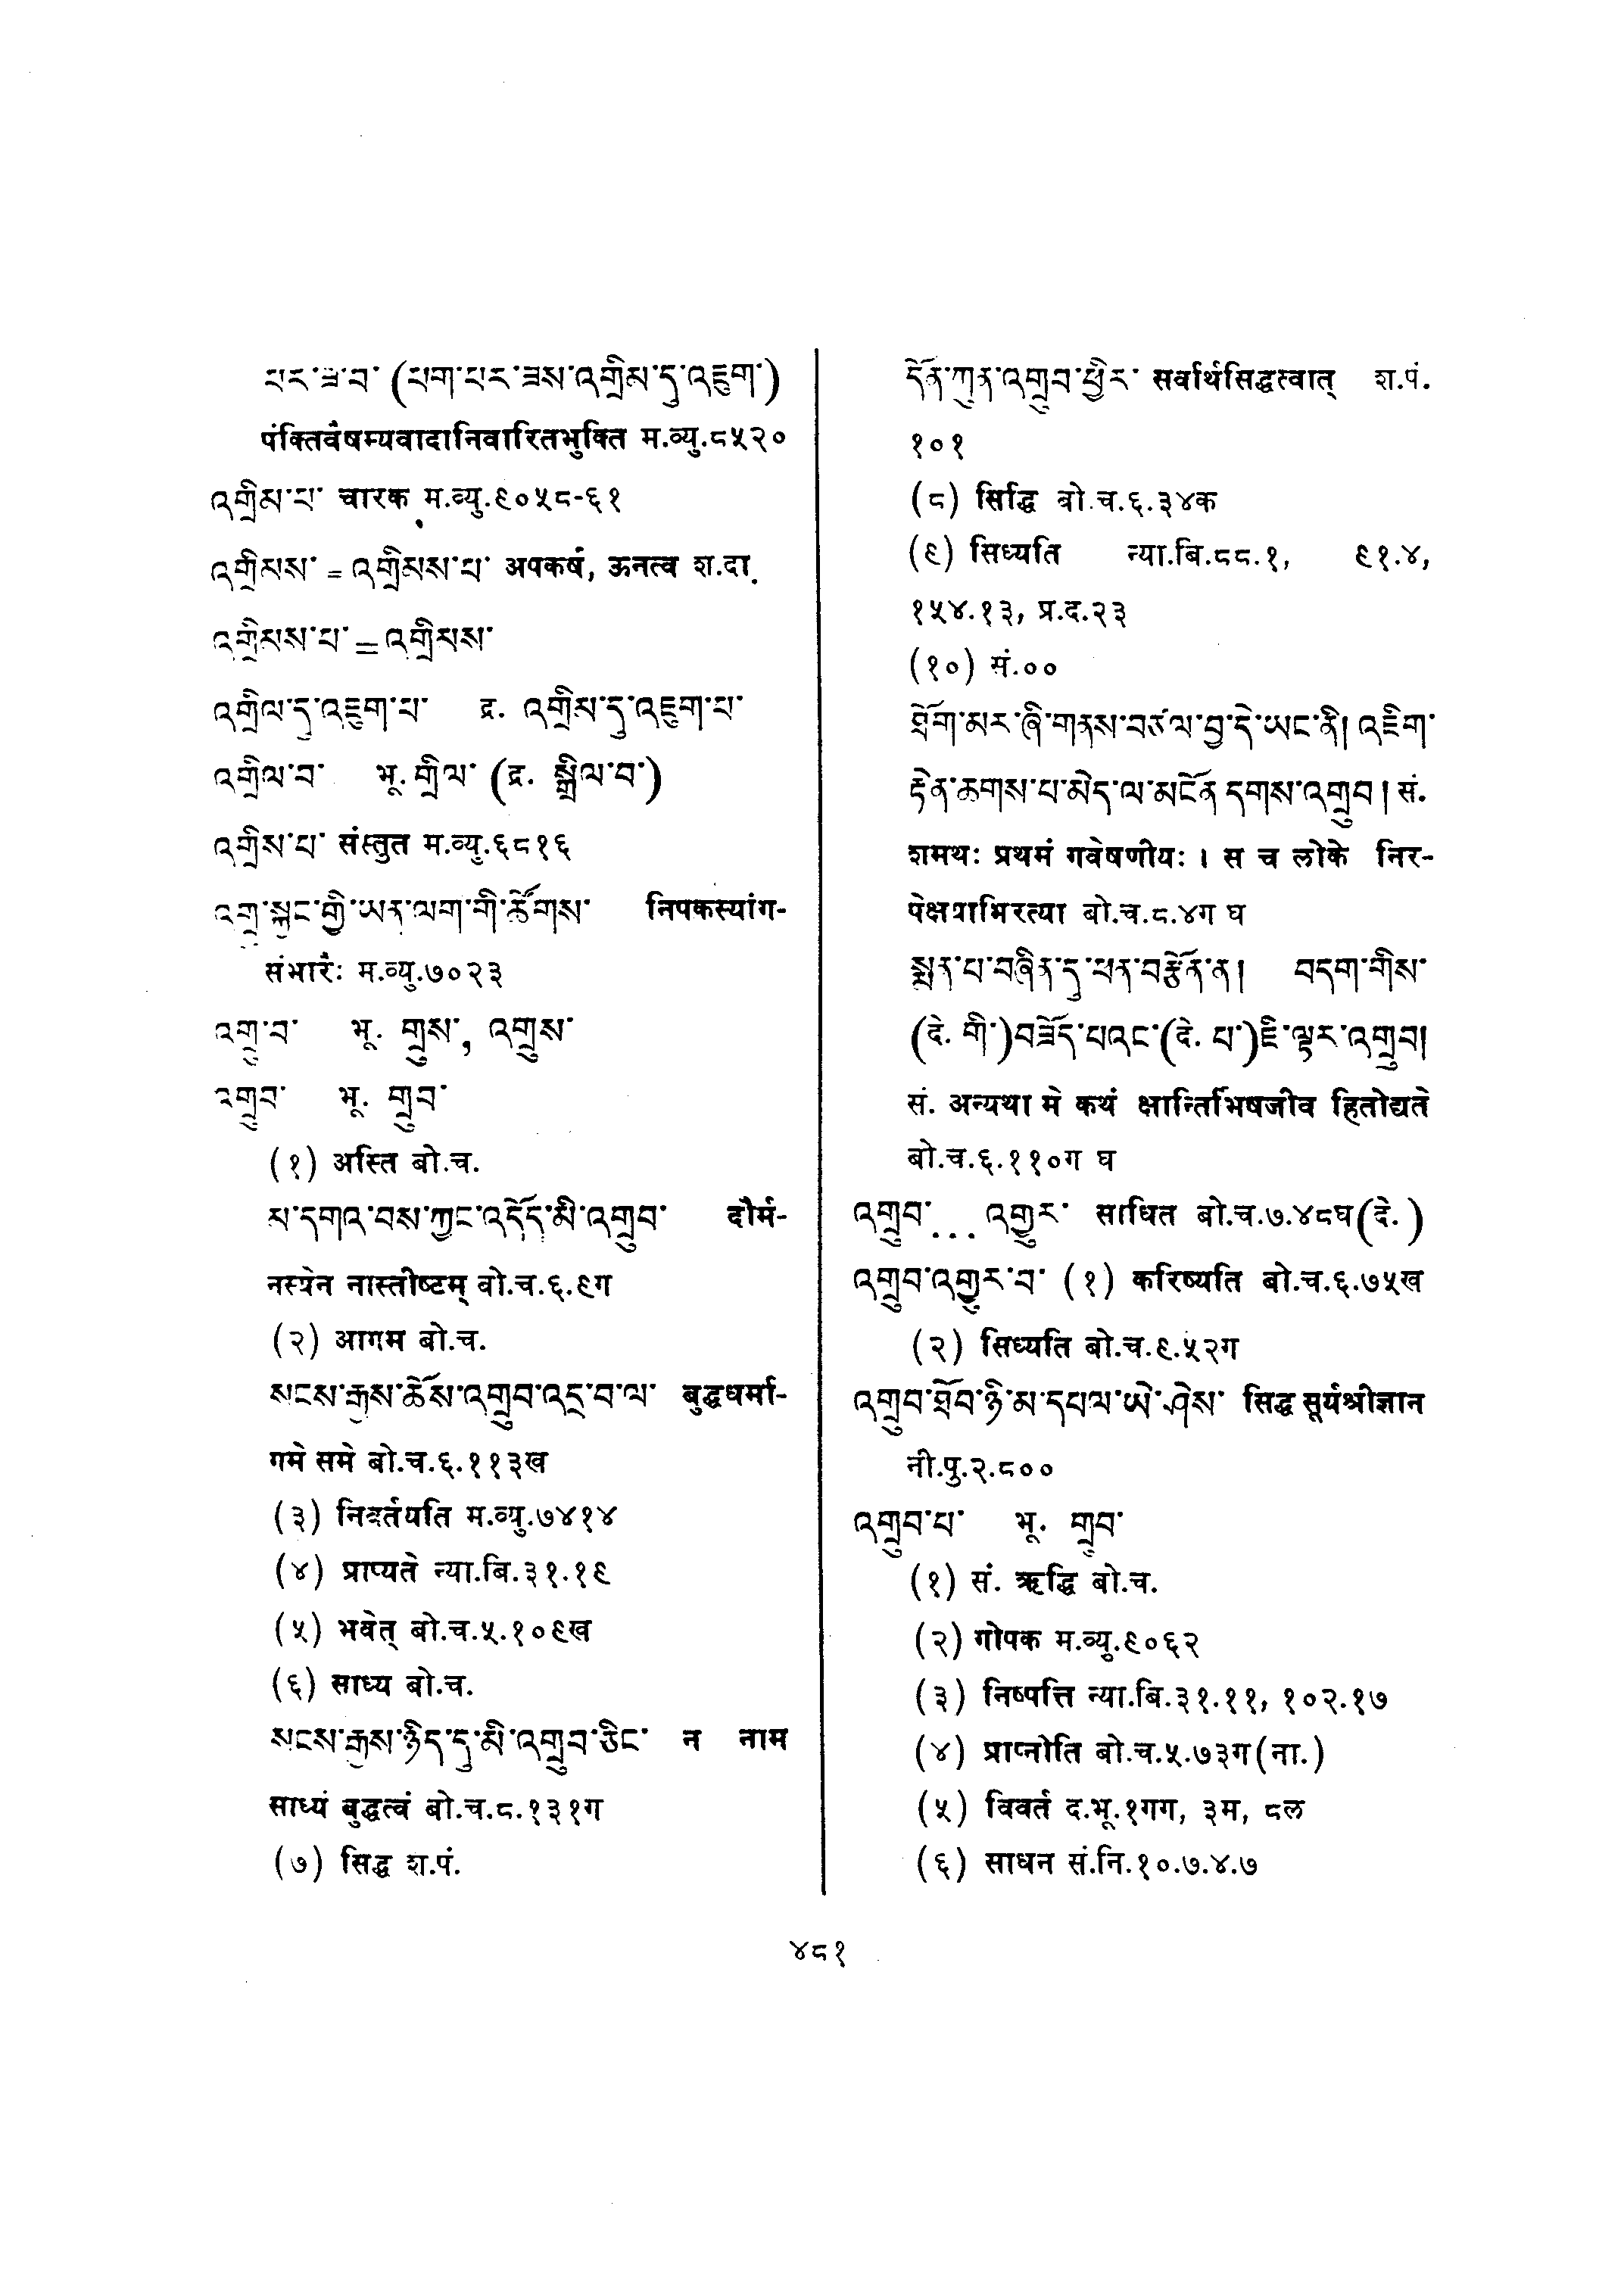 པར་ཟ་བ་ (པག་པར་ཟས་འགྲིམ་དུ་འཇུག་)
पंक्तिवैषम्यवादानिवारितभुक्ति म.व्यु.८५२०
འགྲིམ་པ་ चारक म.व्यु.९०५८-६१
འགྲིབས་ = འགྲིབས་པ་ अपकर्ष, ऊनत्व श.दा.
འགྲིབས་པ་ = འགྲིབས་
འགྲིལ་དུ་འཇུག་པ་ द्र. འགྲིས་དུ་འཇུག་པ་
འགྲིལ་བ་ भू. གྲིལ་ (द्र. སྒྲིལ་བ་)
འགྲིས་པ་ संस्तुत म.व्यु.६८१६
འགྲུ་སྐྱང་གྱི་ཡན་ལག་གི་ཚོགས་ निपकस्यांग-
संभारैः म.व्यु.७०२३
འགྲུ་བ་ भू. གྲུས་, འགྲུས་
འགྲུབ་ भू. གྲུབ་
(१) अस्ति बो.च.
མ་དགའ་བས་ཀྱང་འདོད་མི་འགྲུབ་ दौर्म-
नस्येन नास्तीष्टम् बो.च.६.९ग
(२) आगम बो.च.
སངས་རྒྱས་ཆོས་འགྲུབ་འདྲ་བ་ལ་ बुद्धधर्मा-
गमे समे बो.च.६.११३ख
(३) निवर्तयति म.व्यु.७४१४
(४) प्राप्यते न्या.बि.३१.१९
(५) भवेत् बो.च.५.१०९ख
(६) साध्य बो.च.
སངས་རྒྱས་ཉིད་དུ་མི་འགྲུབ་ཅིང་ न नाम
साध्यं बुद्धत्वं बो.च.८.१३१ग
(७) सिद्ध श.पं.
དོན་ཀུན་འགྲུབ་ཕྱིར་ सर्वार्थसिद्धत्वात् श.पं.
१०१
(८) सिद्धि बो.च.६.३४क
(९) सिध्यति न्या.बि.८८.१, ९१.४,
१५४.१३, प्र.द.२३
(१०) सं.००
ཐོག་མར་ཞི་གནས་བཙལ་བྱ་དེ་ཡང་ནི། འཇིག་
རྟེན་ཆགས་པ་མེད་ལ་མངོན་དགས་འགྲུབ། सं.
शमथः प्रथमं गवेषणीयः । स च लोके निर-
पेक्षयाभिरत्या बो.च.८.४ग घ
སྨན་པ་བཞིན་དུ་ཕན་བརྩོན་ན། བདག་གིས་
(दे. གི་)བཟོད་པའང་(दे. པ་)ཇི་ལྟར་འགྲུབ།
सं. अन्यथा मे कथं क्षान्तिर्भिषजीव हितोद्यते
बो.च.६.११०ग घ
འགྲུབ་... འགྱུར་ साधित बो.च.७.४८घ(दे.)
འགྲུབ་འགྱུར་བ་ (१) करिष्यति बो.च.६.७५ख
(२) सिध्यति बो.च.९.५२ग
འགྲུབ་ཐོབ་ཉི་མ་དཔལ་ཡེ་ཤེས་ सिद्ध सूर्यश्रीज्ञान
नी.पु.२.८००
འགྲུབ་པ་ भू. གྲུབ་
(१) सं. ऋद्धि बो.च.
(२) गोपक म.व्यु.९०६२
(३) निष्पत्ति न्या.बि.३१.११, १०२.१७
(४) प्राप्नोति बो.च.५.७३ग(ना.)
(५) विवर्त द.भू.१गग, ३म, ८ल
(६) साधन सं.नि.१०.७.४.७
४८१